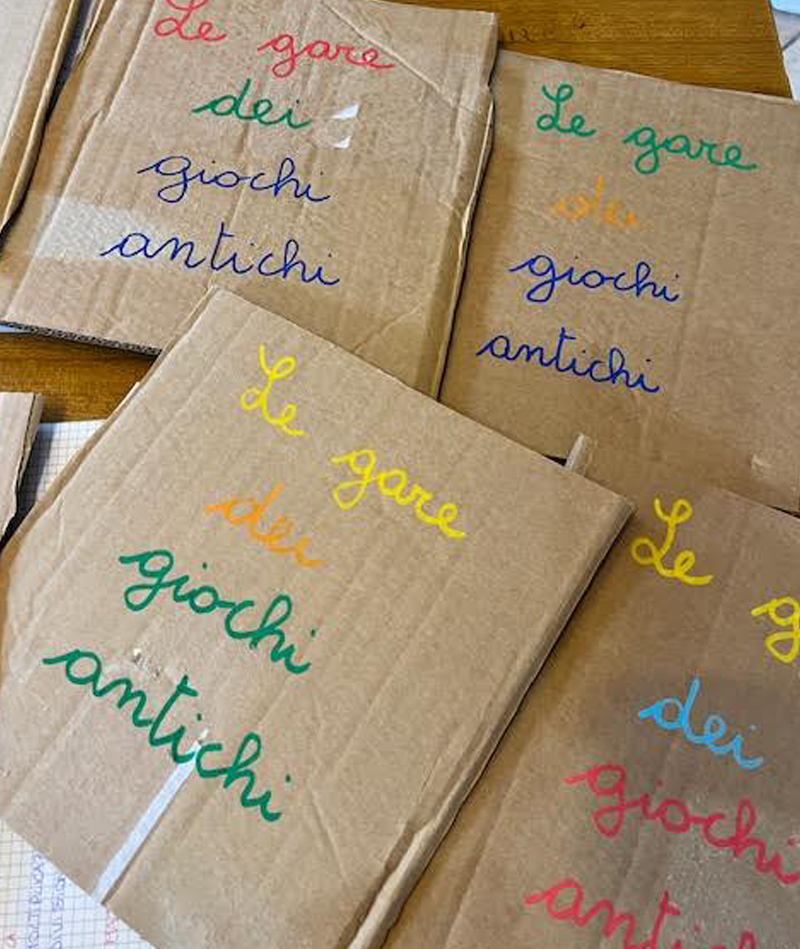 Le gare
dei
giochi
antichi
Le gare
dei
giochi
antichi
Le gare
dei
giochi
antichi
Le g
dei
giochi
antichi